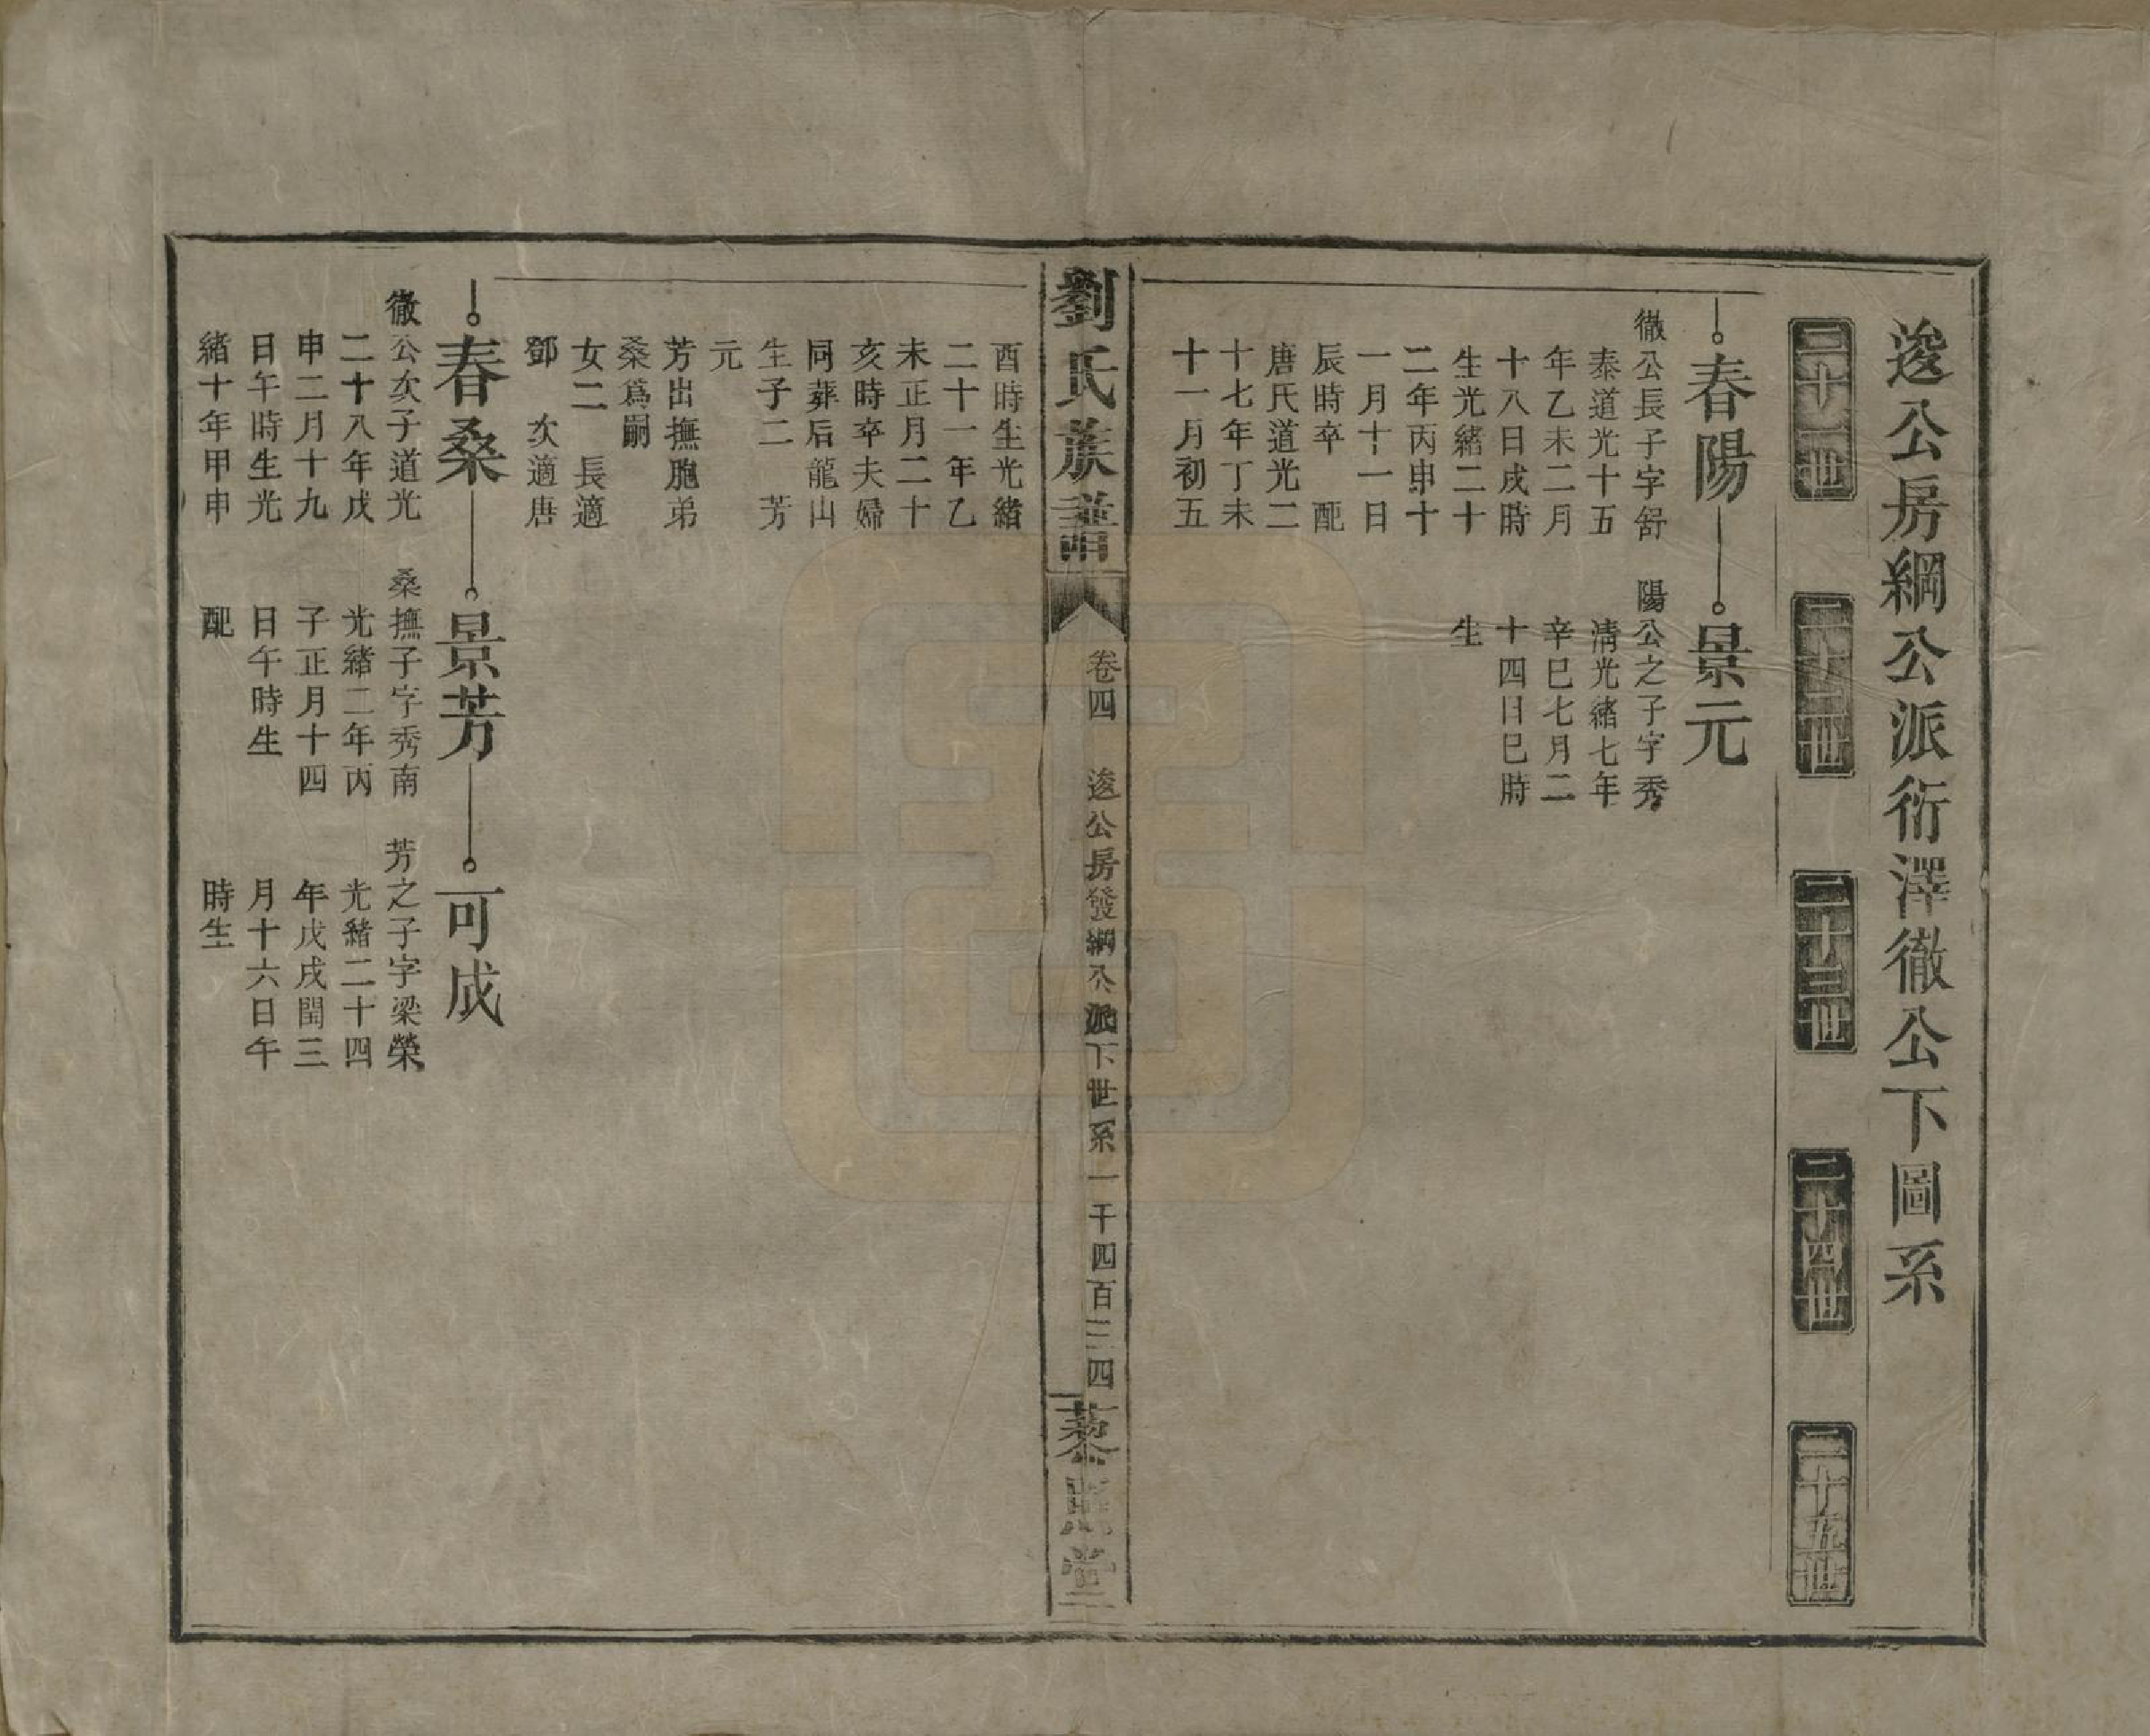 逡公房綱公派衍澤徹公下圖系
二十一世
二十二世
二十三世
二十四世
二十五世
春陽
徹公長子字舒
泰道光十五
年乙未二月
十八日戌時
生光緒二十
二年丙申十
一月十一日
辰時卒　配
唐氏道光二
十七年丁未
十一月初五
景元
陽公之子字秀
清光緒七年
辛巳七月二
十四日巳時
生
劉氏族譜
卷四　逡公房發綱公派下世系一千四百三四
藜照堂
酉時生光緒
二十一年乙
未正月二十
亥時卒夫婦
同葬后龍山
生子二　芳
元
芳出撫胞弟
桑爲嗣
女二　長適
鄧　次適唐
春桑
徹公次子道光
二十八年戊
申二月十九
日午時生光
緒十年甲申
景芳
桑撫子字秀南
光緒二年丙
子正月十四
日午時生
配
可成
芳之子字梁榮
光緒二十四
年戊戌閏三
月十六日午
時生